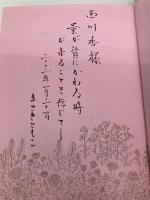 西川 香様
量が質にかわる時
が来ることを信じて
二〇〇二年一月二十一日